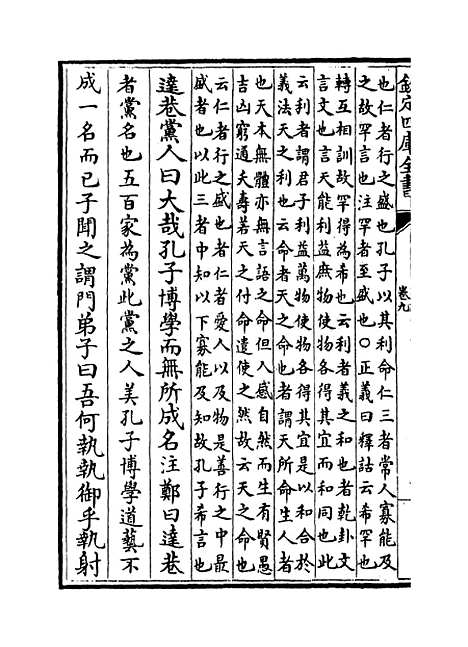 欽定四庫全書
卷九
也仁者行之盛也孔子以其利命仁三者常人寡能及
之故罕言也注罕者至盛也○正義曰釋詁云希罕也
轉互相訓故罕得為希也云利者義之和也者乾卦文
言文也言天能利益庶物使物各得其宜而和同也此
云利者謂君子利益萬物使物各得其宜是以和合於
義法天之利也云命者天之命也者謂天所命生人者
也天本無體亦無言語之命但人感自然而生有賢愚
吉凶窮通夫壽若天之付命遣使之然故云天之命也
云仁者行之盛也者仁者愛人以及物是善行之中最
盛者也以此三者中知以下寡能及知故孔子希言也
達巷黨人曰大哉孔子博學而無所成名注鄭曰達巷
者黨名也五百家為黨此黨之人美孔子博學道藝不
成一名而已子聞之謂門弟子曰吾何執執御乎執射